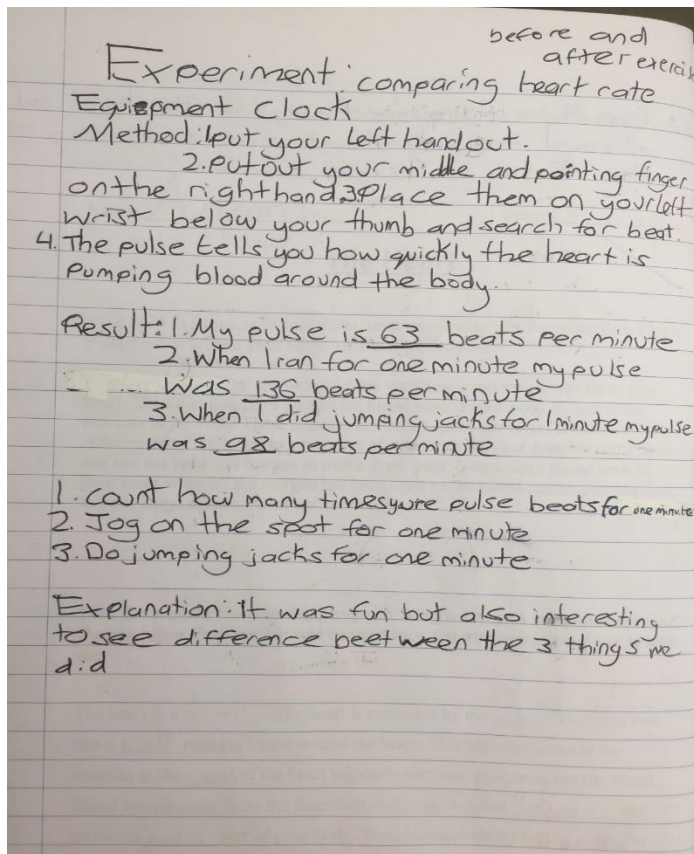 before and
after exercis
Experiment: comparing heart rate
Equiepment clock
Method: 1put your left hand out.
2. Put out your middle and pointing finger
on the right hand 3Place them on your left
wrist below your thumb and search for beat.
4. The pulse tells you how quickly the heart is
pumping blood around the body.
Result: 1. My pulse is 63 beats per minute
2. When I ran for one minute my pulse
was 136 beats per minute
3. When I did jumping jacks for 1 minute my pulse
was 98 beats per minute
1. count how many times your pulse beats for one minute
2. Jog on the spot for one minute
3. Do jumping jacks for one minute
Explanation: It was fun but also interesting
to see difference beetween the 3 things we
did